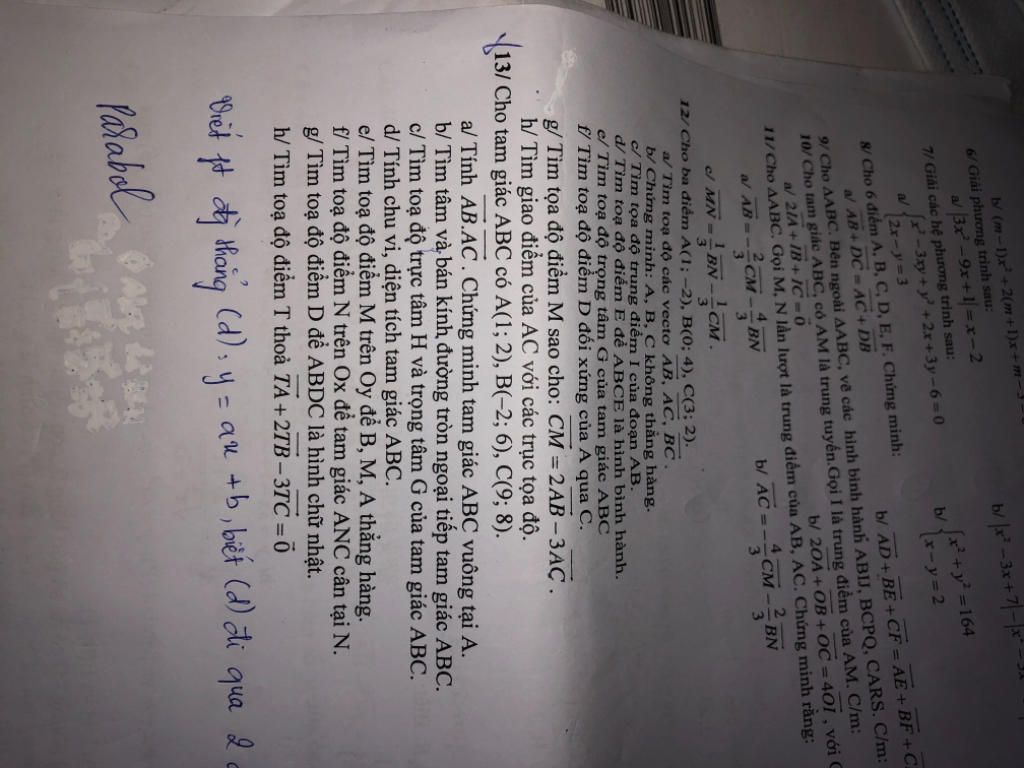 b/ (m−1)x² + 2(m+1)x + m − 3
6/ Giải phương trình sau:
a/ |3x² − 9x + 1| = x − 2
b/ |x² − 3x + 7| −
7/ Giải các hệ phương trình sau:
a/ { x² − 3xy + y² + 2x + 3y − 6 = 0
2x − y = 3
b/ { x² + y² = 164
x − y = 2
8/ Cho 6 điểm A, B, C, D, E, F. Chứng minh:
a/ AB + DC = AC + DB
b/ AD + BE + CF = AE + BF + C
9/ Cho ΔABC. Bên ngoài ΔABC, vẽ các hình bình hành ABIJ, BCPQ, CARS. C/m:
10/ Cho tam giác ABC, có AM là trung tuyến.Gọi I là trung điểm của AM. C/m:
a/ 2IA + IB + IC = 0
b/ 2OA + OB + OC = 4OI , với
11/ Cho ΔABC. Gọi M, N lần lượt là trung điểm của AB, AC. Chứng minh rằng:
a/ AB = −2/3 CM − 4/3 BN
b/ AC = −4/3 CM − 2/3 BN
c/ MN = 1/3 BN − 1/3 CM .
12/ Cho ba điểm A(1; −2), B(0; 4), C(3; 2).
a/ Tìm toạ độ các vectơ AB, AC, BC .
b/ Chứng minh: A, B, C không thẳng hàng.
c/ Tìm tọa độ trung điểm I của đoạn AB.
d/ Tìm toạ độ điểm E để ABCE là hình bình hành.
e/ Tìm toạ độ trọng tâm G của tam giác ABC
f/ Tìm toạ độ điểm D đối xứng của A qua C.
g/ Tìm tọa độ điểm M sao cho: CM = 2AB − 3AC .
h/ Tìm giao điểm của AC với các trục tọa độ.
13/ Cho tam giác ABC có A(1; 2), B(−2; 6), C(9; 8).
a/ Tính AB.AC . Chứng minh tam giác ABC vuông tại A.
b/ Tìm tâm và bán kính đường tròn ngoại tiếp tam giác ABC.
c/ Tìm toạ độ trực tâm H và trọng tâm G của tam giác ABC.
d/ Tính chu vi, diện tích tam giác ABC.
e/ Tìm toạ độ điểm M trên Oy để B, M, A thẳng hàng.
f/ Tìm toạ độ điểm N trên Ox để tam giác ANC cân tại N.
g/ Tìm toạ độ điểm D để ABDC là hình chữ nhật.
h/ Tìm toạ độ điểm T thoả TA + 2TB − 3TC = 0
Viết pt đg thẳng (d): y = ax + b, biết (d) đi qua 2
Parabol